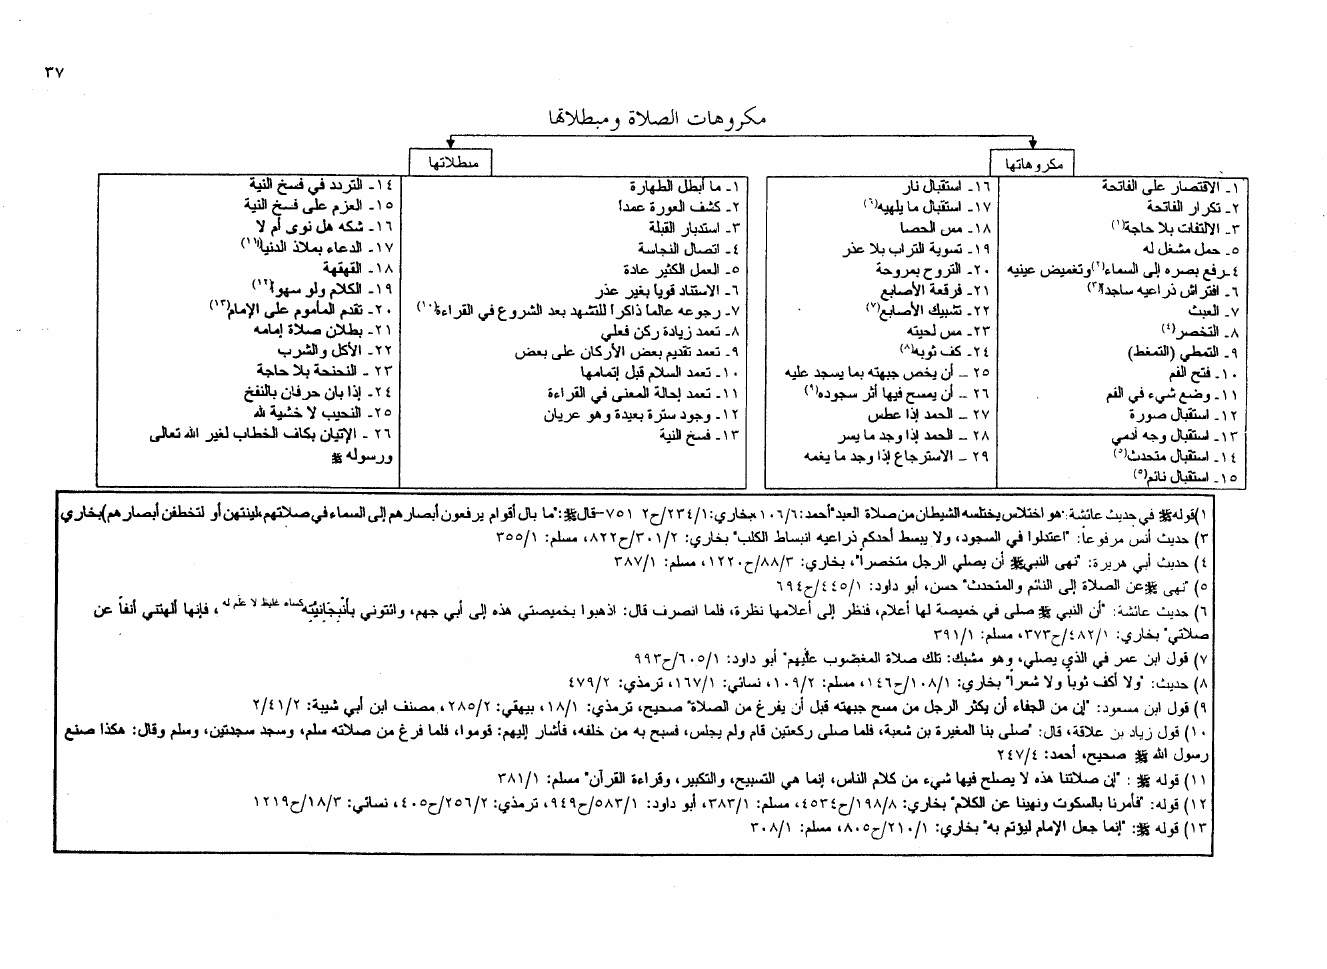 ٣٧
مكروهات الصلاة ومبطلاتها
مكروهاتها
١ـ الاقتصار على الفاتحة
٢ـ تكرار الفاتحة
٣ـ الالتفات بلا حاجة(١)
٥ـ حمل مشغل له
٤ـ رفع بصره إلى السماء(٢) وتغميض عينيه
٦ـ افتراش ذراعيه ساجداً(٣)
٧ـ العبث
٨ـ التخصر(٤)
٩ـ التمطي (التمغط)
١٠ـ فتح الفم
١١ـ وضع شيء في الفم
١٢ـ استقبال صورة
١٣ـ استقبال وجه آدمي
١٤ـ استقبال متحدث(٥)
١٥ـ استقبال نائم(٥)
١٦ـ استقبال نار
١٧ـ استقبال ما يلهيه(٦)
١٨ـ مس الحصا
١٩ـ تسوية التراب بلا عذر
٢٠ـ التروح بمروحة
٢١ـ فرقعة الأصابع
٢٢ـ تشبيك الأصابع(٧)
٢٣ـ مس لحيته
٢٤ـ كف ثوبه(٨)
٢٥ – أن يخص جبهته بما يسجد عليه
٢٦ – أن يمسح فيها أثر سجوده(٩)
٢٧ – الحمد إذا عطس
٢٨ – الحمد إذا وجد ما يسر
٢٩ – الاسترجاع إذا وجد ما يغمه
مبطلاتها
١ـ ما أبطل الطهارة
٢ـ كشف العورة عمداً
٣ـ استدبار القبلة
٤ـ اتصال النجاسة
٥ـ العمل الكثير عادة
٦ـ الاستناد قويا بغير عذر
٧ـ رجوعه عالماً ذاكراً للتشهد بعد الشروع في القراءة(١٠)
٨ـ تعمد زيادة ركن فعلي
٩ـ تعمد تقديم بعض الأركان على بعض
١٠ـ تعمد السلام قبل إتمامها
١١ـ تعمد إحالة المعنى في القراءة
١٢ـ وجود سترة بعيدة وهو عريان
١٣ـ فسخ النية
١٤ـ التردد في فسخ النية
١٥ـ العزم على فسخ النية
١٦ـ شكه هل نوى أم لا
١٧ـ الدعاء بملاذ الدنيا(١١)
١٨ـ القهقهة
١٩ـ الكلام ولو سهواً(١٢)
٢٠ـ تقدم المأموم على الإمام(١٣)
٢١ـ بطلان صلاة إمامه
٢٢ـ الأكل والشرب
٢٣ – النحنحة بلا حاجة
٢٤ـ إذا بان حرفان بالنفخ
٢٥ـ النحيب لا خشية لله
٢٦ – الإتيان بكاف الخطاب لغير الله تعالى
ورسوله ﷺ
١) قوله ﷺ في حديث عائشة: "هو اختلاس يختلسه الشيطان من صلاة العبد" أحمد: ١٠٦/٦، بخاري: ٢٣٤/١ح٧٥١ ٢– قال ﷺ: "ما بال أقوام يرفعون أبصارهم إلى السماء في صلاتهم، لينتهن أو لتخطفن أبصارهم" بخاري
٣) حديث أنس مرفوعاً: "اعتدلوا في السجود، ولا يبسط أحدكم ذراعيه انبساط الكلب" بخاري: ٣٠١/٢ح٨٢٢، مسلم: ٣٥٥/١
٤) حديث أبي هريرة: "نهى النبي ﷺ أن يصلي الرجل متخصراً"، بخاري: ٨٨/٣ح١٢٢٠، مسلم: ٣٨٧/١
٥) "نهى ﷺ عن الصلاة إلى النائم والمتحدث" حسن، أبو داود: ٤٤٥/١ح٦٩٤
٦) حديث عائشة: "أن النبي ﷺ صلى في خميصة لها أعلام، فنظر إلى أعلامها نظرة، فلما انصرف قال: اذهبوا بخميصتي هذه إلى أبي جهم، وائتوني بأَنْبِجَانِيَّتِه كساء غليظ لا علم له، فإنها ألهتني آنفاً عن
صلاتي" بخاري: ٤٨٢/١ح٣٧٣، مسلم: ٣٩١/١
٧) قول ابن عمر في الذي يصلي، وهو مشبك: تلك صلاة المغضوب عليهم" أبو داود: ٦٠٥/١ح٩٩٣
٨) حديث: "ولا أكف ثوباً ولا شعراً" بخاري: ١٠٨/١ح١٤٦، مسلم: ١٠٩/٢، نسائي: ١٦٧/١، ترمذي: ٤٧٩/٢
٩) قول ابن مسعود: "إن من الجفاء أن يكثر الرجل من مسح جبهته قبل أن يفرغ من الصلاة" صحيح، ترمذي: ١٨/١، بيهقي: ٢٨٥/٢، مصنف ابن أبي شيبة: ٢/٤١/٢
١٠) قول زياد بن علاقة، قال: "صلى بنا المغيرة بن شعبة، فلما صلى ركعتين قام ولم يجلس، فسبح به من خلفه، فأشار إليهم: قوموا، فلما فرغ من صلاته سلم، وسجد سجدتين، وسلم وقال: هكذا صنع
رسول الله ﷺ صحيح، أحمد: ٢٤٧/٤
١١) قوله ﷺ : "إن صلاتنا هذه لا يصلح فيها شيء من كلام الناس، إنما هي التسبيح، والتكبير، وقراءة القرآن" مسلم: ٣٨١/١
١٢) قوله: "فأمرنا بالسكوت ونهينا عن الكلام" بخاري: ١٩٨/٨ح٤٥٣٤، مسلم: ٣٨٣/١، أبو داود: ٥٨٣/١ح٩٤٩، ترمذي: ٢٥٦/٢ح٤٠٥، نسائي: ١٨/٣ح١٢١٩
١٣) قوله ﷺ: "إنما جعل الإمام ليؤتم به" بخاري: ٢١٠/١ح٨٠٥، مسلم: ٣٠٨/١